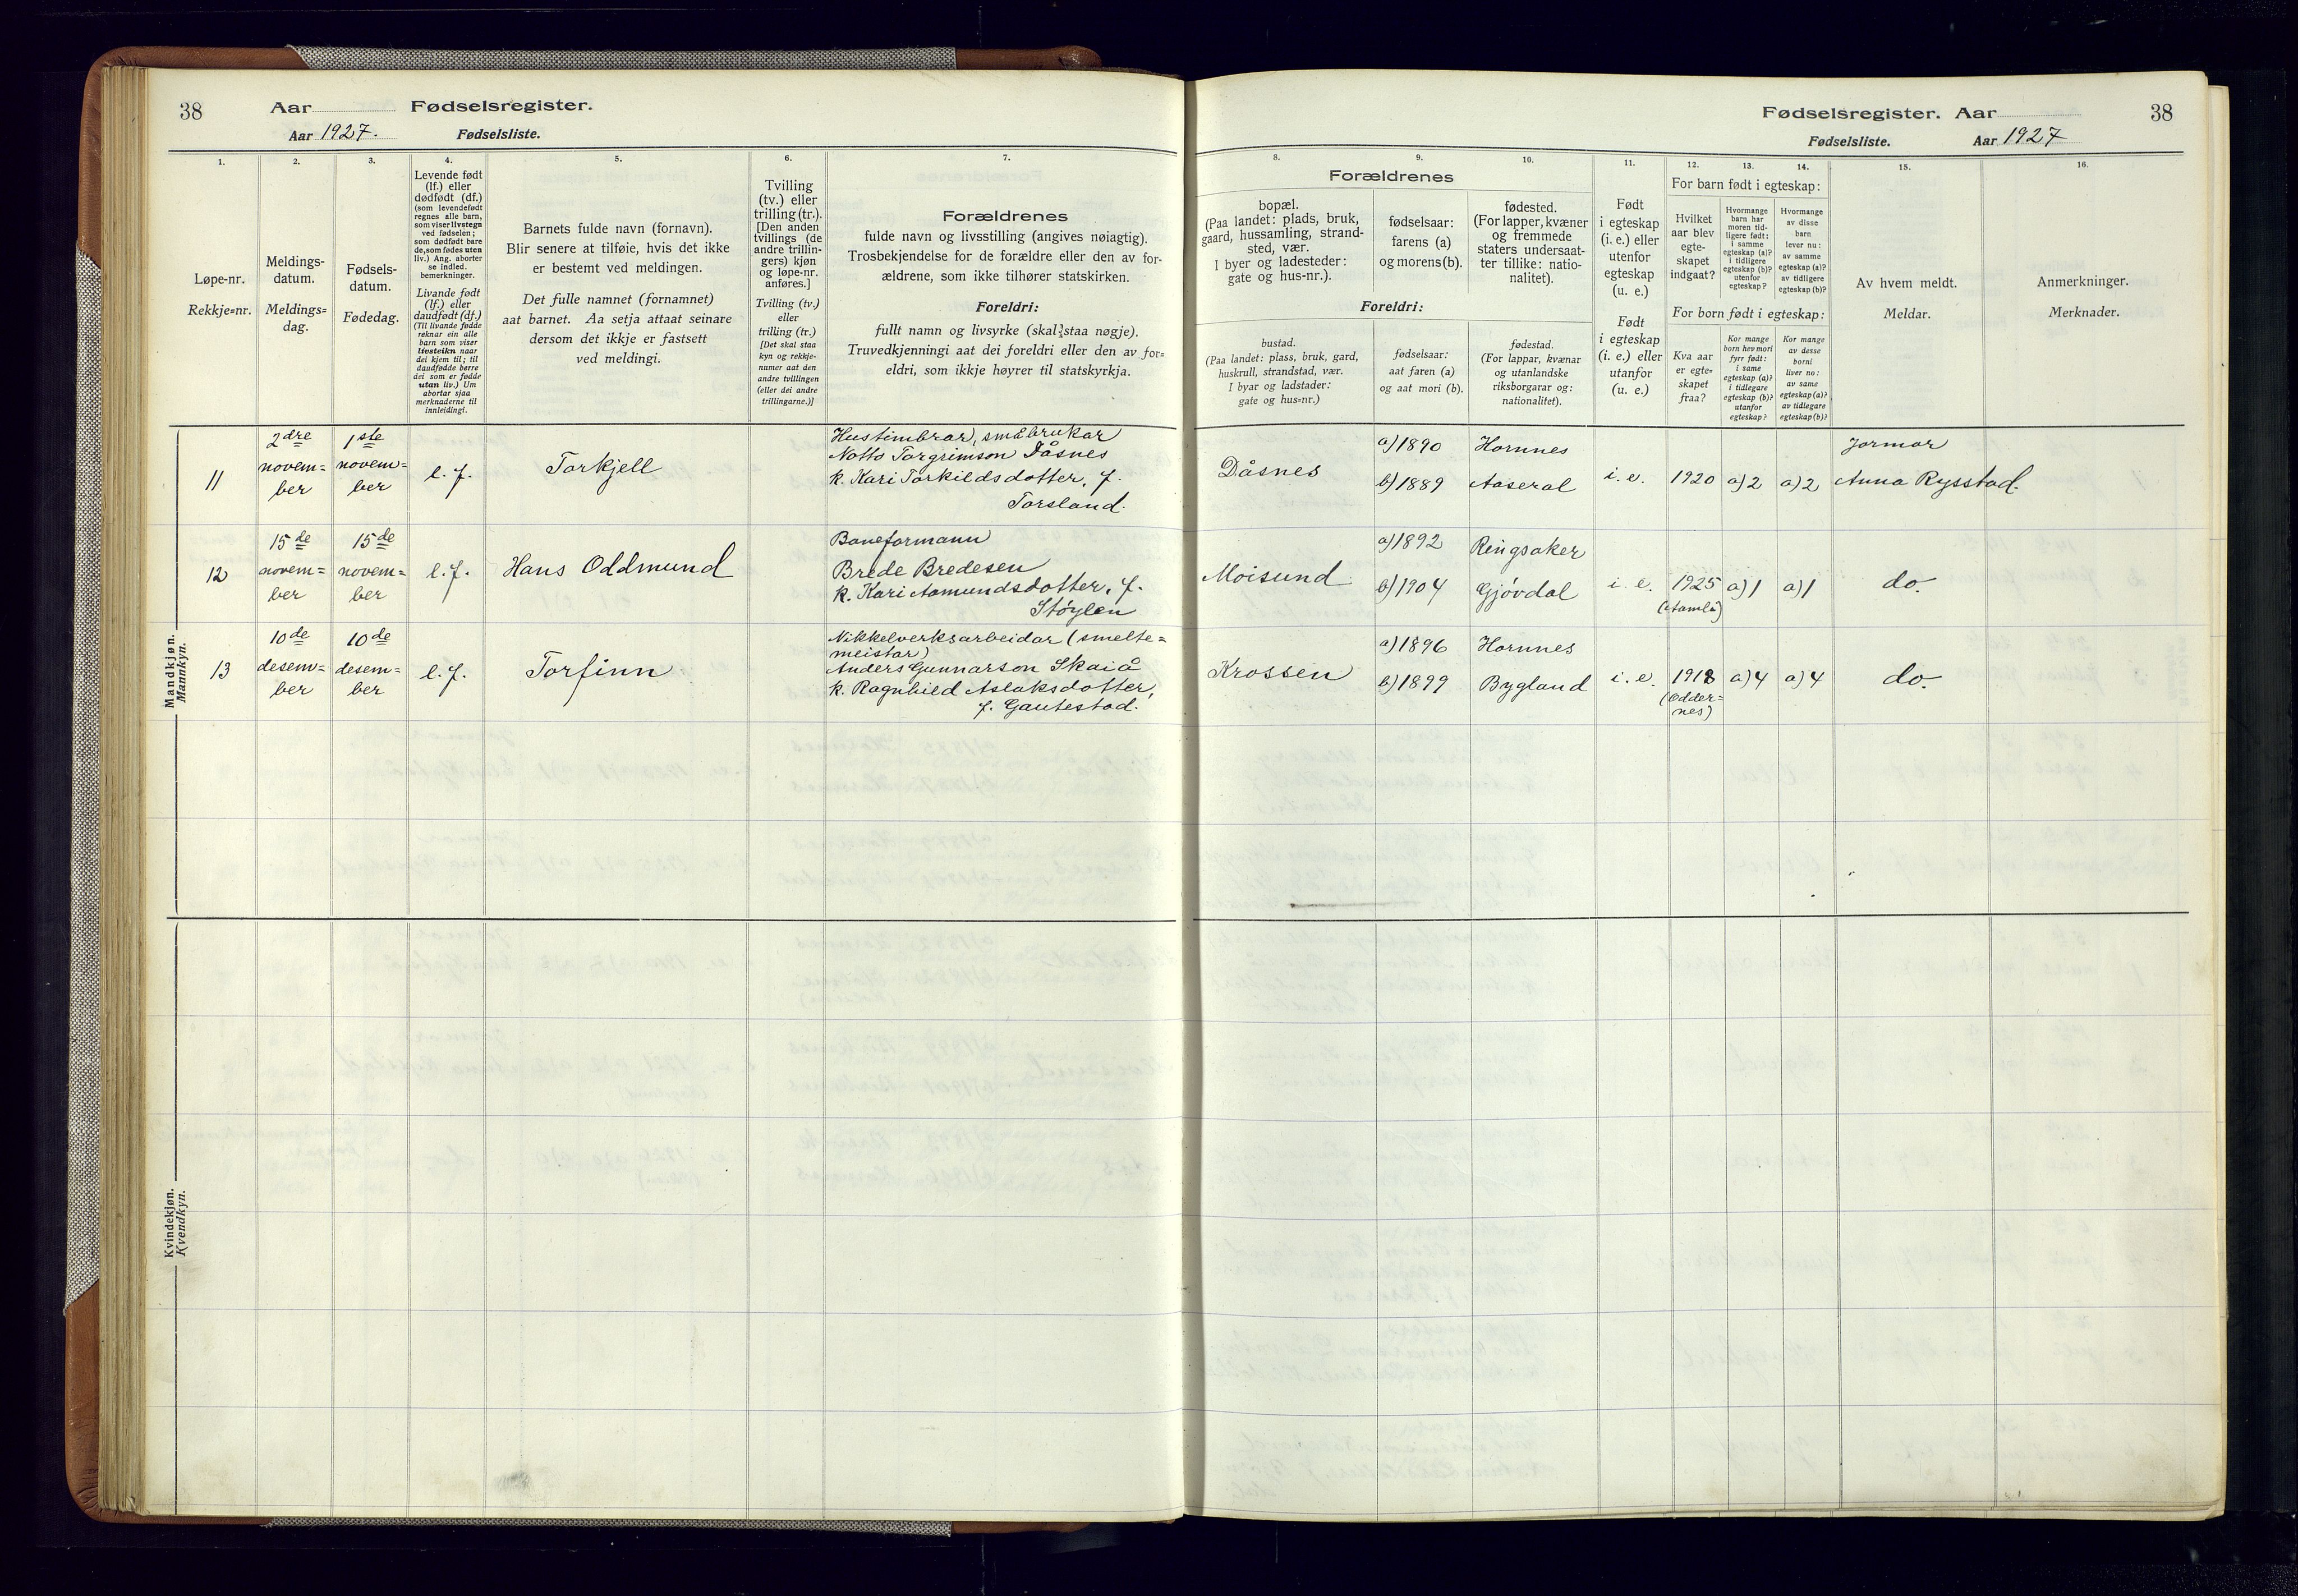 38 Aar Fødselsregister.
Aar 1927. Fødselsliste.
1.
2.
3.
4.
5.
6.
7.
Løpe-nr.
Rekkje=nr.
Meldings-
datum.
Meldings=
dag.
Fødsels-
datum.
Fødedag.
Levende født
(lf.) eller
dødfødt (df.)
(som levendefødt
regnes alle barn,
som viser livstegn
ved fødselen;
som dødfødt bare
de, som fødes uten
liv.) Ang. aborter
se indled.
bemerkninger.
Livande født
(lf.) eller
daudfødt (df.)
(Til livande fødde
reknar ein alle
barn som viser
livsteikn naar
dei kjem til; til
daudfødde berre
dei som er fødde
utan liv.) Um
abortar sjaa
merknaderne til
innleidingi.
Barnets fulde navn (fornavn).
Blir senere at tilføie, hvis det ikke
er bestemt ved meldingen.
Det fulle namnet (fornamnet)
aat barnet. Aa setja attaat seinare
dersom det ikkje er fastsett
ved meldingi.
Tvilling
(tv.) eller
trilling (tr.).
[Den anden
tvillings (de
andre trillin-
gers) kjøn
og løpe-nr.
anføres.]
Tvilling (tv.)
eller
trilling (tr.)
[Det skal staa
kyn og rekkje-
numer aat den
andre tvillingen
(eller dei andre
trillingarne.)]
Forældrenes
fulde navn og livsstilling (angives nøiagtig).
Trosbekjendelse for de forældre eller den av for-
ældrene, som ikke tilhører statskirken.
Foreldri:
fullt namn og livsyrke (skal staa nøgje).
Truvedkjenningi aat dei foreldri eller den av for-
eldri, som ikkje høyrer til statskyrkja.
Mandkjøn.
Mannkyn.
11
2dre
novem=
ber
1ste
novem=
ber
l. f.
Torkjell
Hustimbrar, småbrukar
Notto Torgrimson Dåsnes
k. Kari Torkildsdotter, f.
Torsland.
12
15de
novem=
ber
15de
novem=
ber
l. f.
Hans Oddmund
Baneformann
Brede Bredesen
k. Kari Aamundsdotter, f.
Støylen
13
10de
desem=
ber
10de
desem=
ber
l. f.
Torfinn
Nikkelverksarbeidar (smelte=
meistar)
Anders Gunnarson Skaiå
k. Ragnhild Aslaksdotter,
f. Gautestad.
Kvindekjøn.
Kvendkyn.
Fødselsregister. Aar 38
Fødselsliste. Aar 1927
8.
9.
10.
11.
12.
13.
14.
15.
16.
Forældrenes
bopæl.
(Paa landet: plads, bruk,
gaard, hussamling, strand-
sted, vær.
I byer og ladesteder:
gate og hus-nr.).
fødselsaar:
farens (a)
og morens (b).
fødested.
(For lapper, kvæner
og fremmede
staters undersaat-
ter tillike: natio-
nalitet).
Foreldri:
bustad.
(Paa landet: plass, bruk, gard,
huskrull, strandstad, vær.
I byar og ladstader:
gate og hus=nr.)
fødselsaar:
aat faren (a)
og aat mori (b).
fødestad.
(For lappar, kvænar
og utanlandske
riksborgarar og:
nationalitet).
Født
i egteskap
(i. e.) eller
utenfor
egteskap
(u. e.)
Født
i egteskap
(i. e.) eller
utanfor
(u. e.)
For barn født i egteskap:
Hvilket
aar blev
egte-
skapet
indgaat?
Hvormange
barn har
moren tid-
ligere født:
i samme
egteskap (a)?
i tidligere
egteskap (b)?
utenfor
egteskap?
Hvormange
av disse
barn
lever nu:
av samme
egteskap (a)?
av tidligere
egteskap (b)?
For born født i egteskap:
Kva aar
er egte-
skapet
fraa?
Kor mange
born hev mori
fyrr født:
i same
egteskap (a)?
i tidlegare
egteskap (b)?
utanfor
egteskap?
Kor mange
av desse
borni
liver no:
av same
egteskap (a)?
av tidlegare
egteskap (b)?
Av hvem meldt.
Meldar.
Anmerkninger.
Merknader.
Dåsnes
a) 1890
b) 1889
Hornnes
Aaseral
i. e.
1920
a) 2
a) 2
Jormor
Anna Rysstad.
Moisund
a) 1892
b) 1904
Ringsaker
Gjøvdal
i. e.
1925
(Aamli)
a) 1
a) 1
do.
Krossen
a) 1896
b) 1899
Hornnes
Bygland
i. e.
1918
(Odder=
nes)
a) 4
a) 4
do.